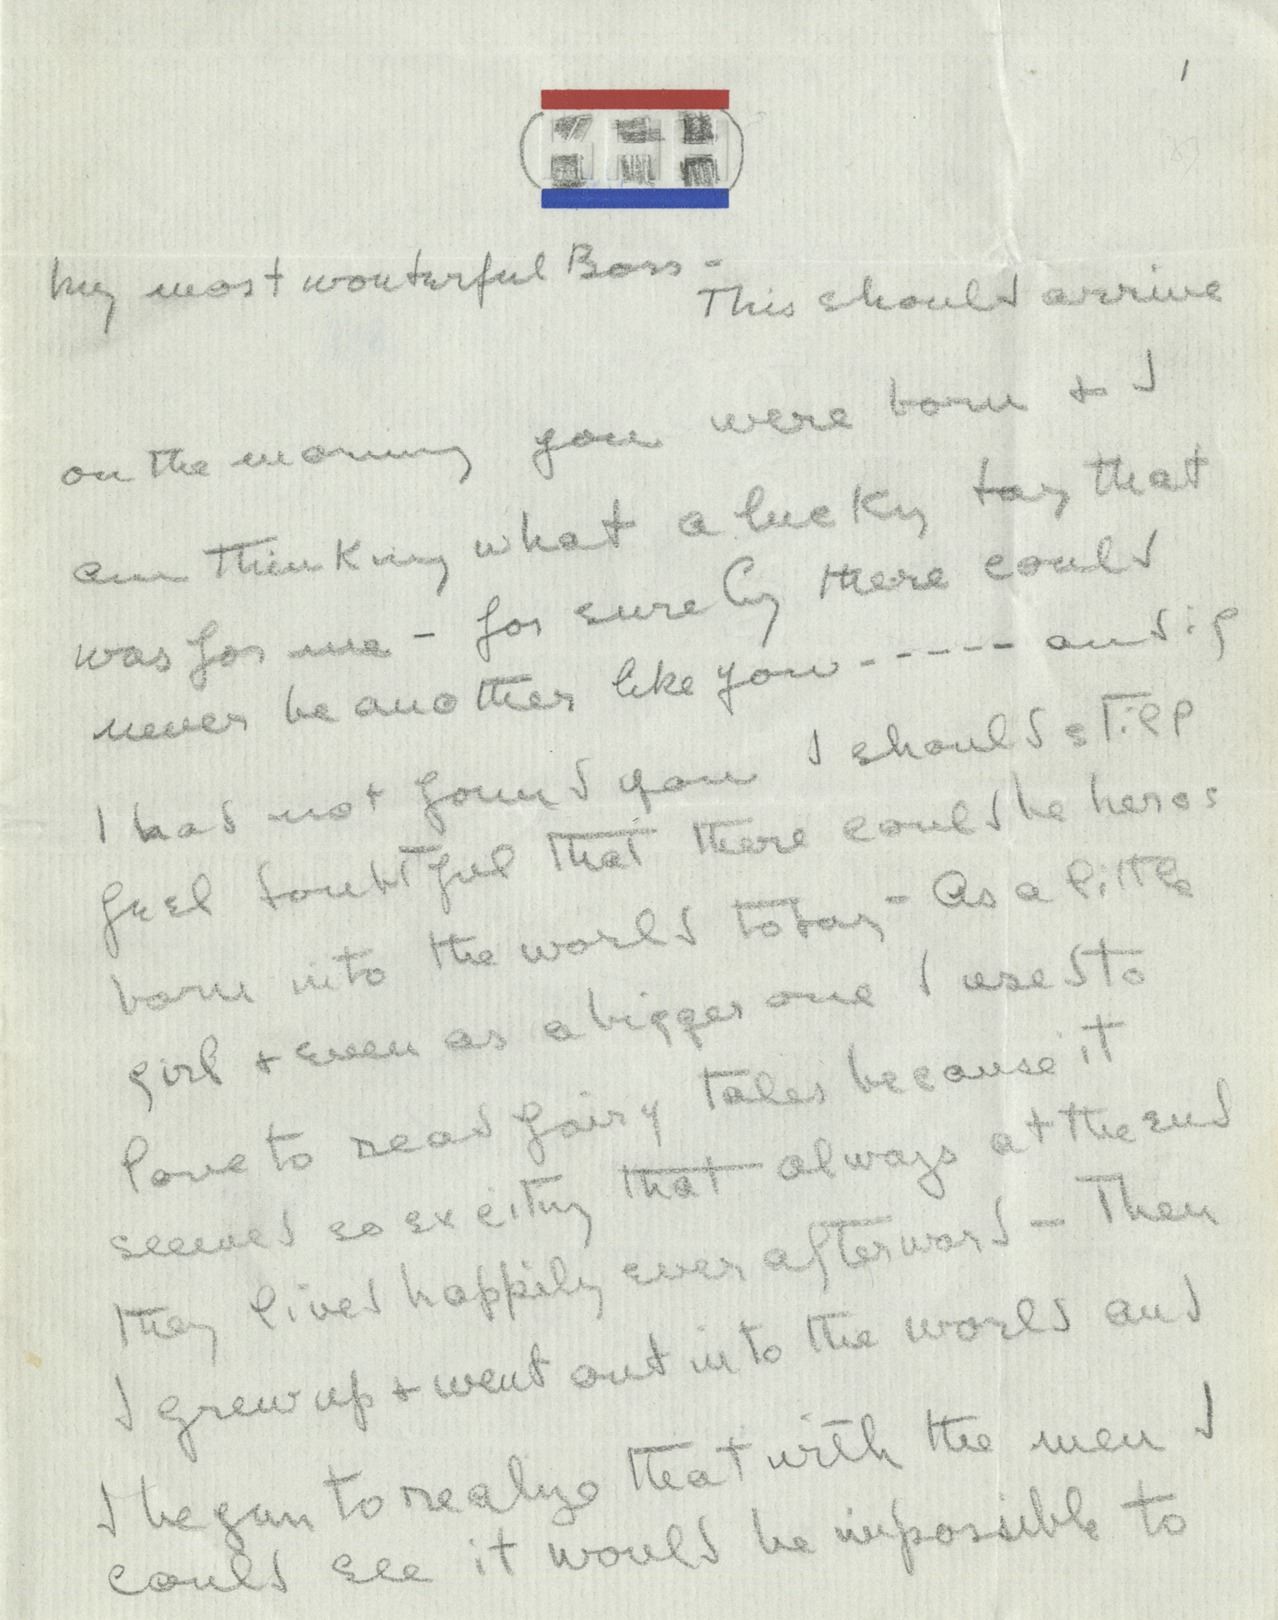 1
My most wonderful Boss -
This should arrive
on the morning you were born + I
am thinking what a lucky day that
was for me - for surely there could
never be another like you ------ and if
I had not found you I should still
feel doubtful that there could be heros
born into the world today - As a little
girl + even as a bigger one I used to
love to read fairy tales because it
seemed so exciting that always at the end
they lived happily ever afterward - Then
I grew up + went out into the world and
I began to realize that with the men I
could see it would be impossible to